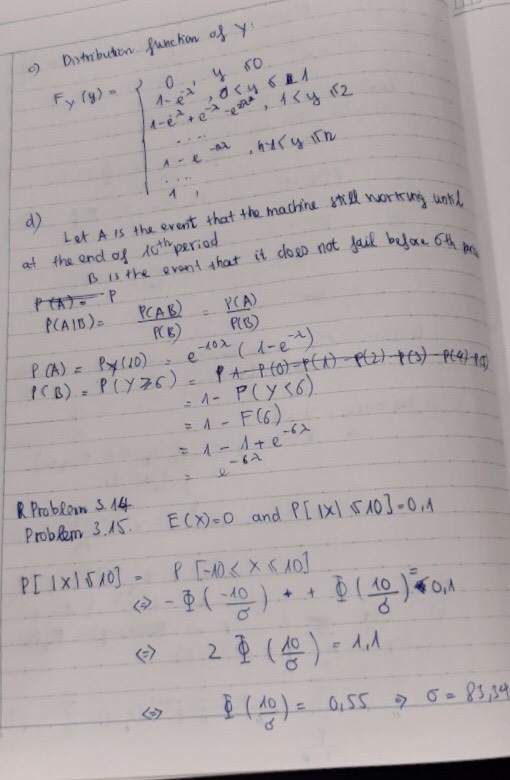 c) Distribution function of Y:
F_Y(y) = { 0 , y ≤ 0
1 - e^-λ , 0 < y ≤ 1
1 - e^-λ + e^-λ - e^-2λ , 1 < y ≤ 2
....
1 - e^-nλ , n-1 < y ≤ n
...
1 ,
d) Let A is the event that the machine still working until
at the end of 10th period
B is the event that it does not fail before 6th
P(A) = P
P(A|B) = P(AB)/P(B) = P(A)/P(B)
P(A) = P_Y(10) = e^-10λ (1 - e^-λ)
P(B) = P(Y ≥ 6) = 1 - P(0) - P(1) - P(2) - P(3) - P(4)
= 1 - P(Y < 6)
= 1 - F(6)
= 1 - 1 + e^-6λ
= e^-6λ
Problem 3.14
Problem 3.15. E(X) = 0 and P[|X| ≤ 10] = 0,1
P[|X| ≤ 10] = P[-10 ≤ X ≤ 10]
⇔ - Φ(-10/σ) + Φ(10/σ) = 0,1
⇔ 2 Φ(10/σ) = 1,1
⇔ Φ(10/σ) = 0,55 ⇒ σ = 83,34